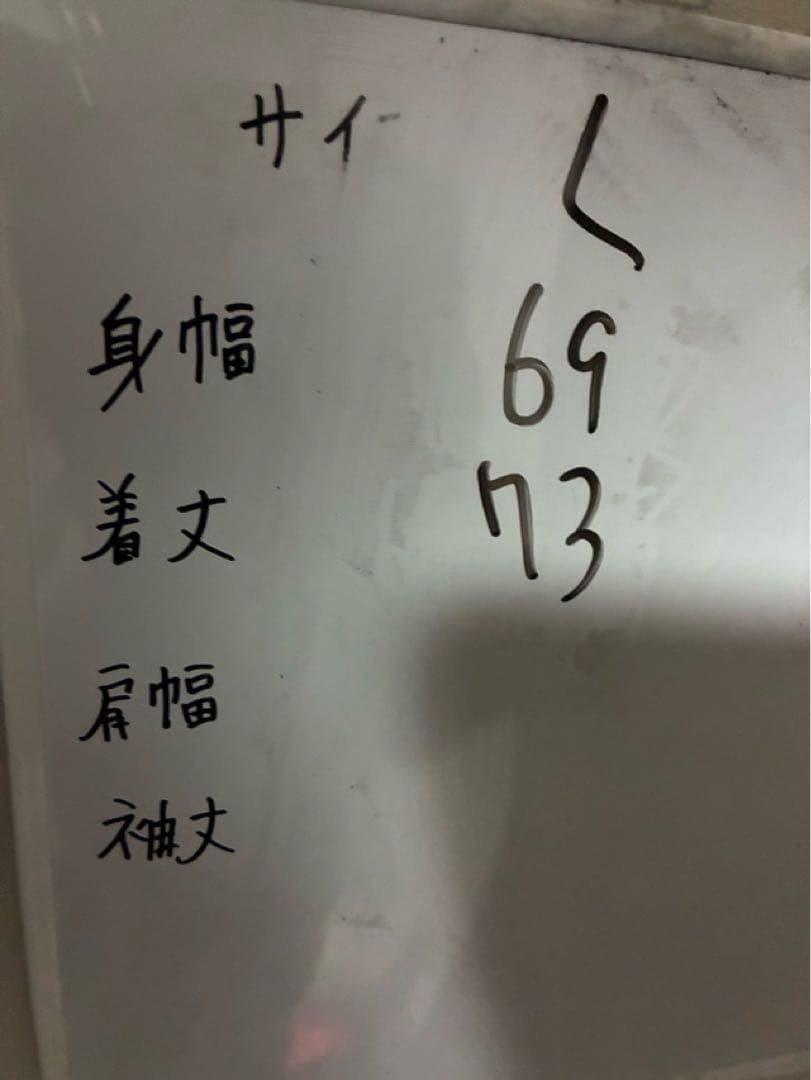 サイ L
身幅 69
着丈 73
肩幅
袖丈